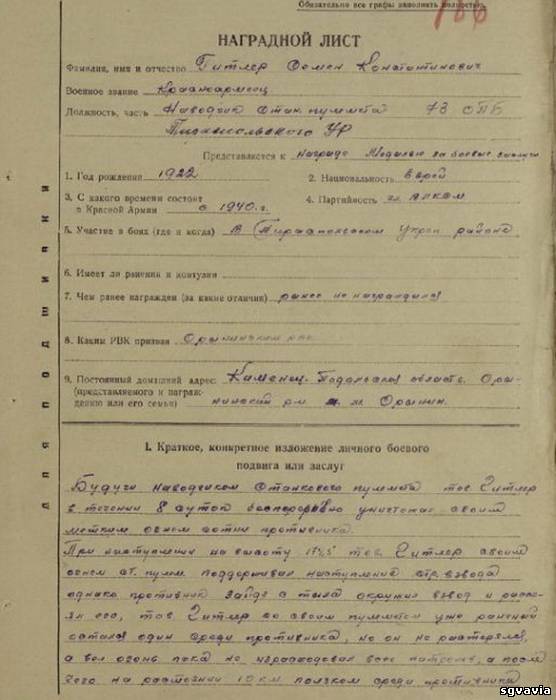 Обязательно все графы заполнять полностью.
НАГРАДНОЙ ЛИСТ
Фамилия, имя и отчество Гитлер Семен Константинович
Военное звание Красноармеец
Должность, часть Наводчик стан. пулемета 73 ОПБ
Тираспольского УР
Представляется к награде Медалью за боевые заслуги
1. Год рождения 1922
2. Национальность еврей
3. С какого времени состоит
в Красной Армии с 1940 г.
4. Партийность чл. ЛКСМ
5. Участие в боях (где и когда) В Тираспольском Укреп районе
6. Имеет ли ранения и контузии
7. Чем ранее награжден (за какие отличия) ранее не награждался
8. Каким РВК призван Орынинским рвк
9. Постоянный домашний адрес: Каменец-Подольская область Оры-
(представляемого к награж-
дению или его семьи) нинский р-н м. Орынин.
для подшивки
I. Краткое, конкретное изложение личного боевого
подвига или заслуг
Будучи наводчиком станкового пулемета тов Гитлер
в течении 8 суток беспрерывно уничтожал своим
метким огнем сотни противника.
При наступлении на высоту 174,5 тов Гитлер своим
огнем ст. пулем. поддерживал наступление стр. взвода
однако противник зайдя с тыла окружил взвод и рассе-
ял его, тов Гитлер со своим пулеметом уже раненый
остался один среди противника, но он не растерялся,
а вел огонь пока не израсходовал всех патронов, а после
чего на расстоянии 10 км ползком среди противника
sgvavia